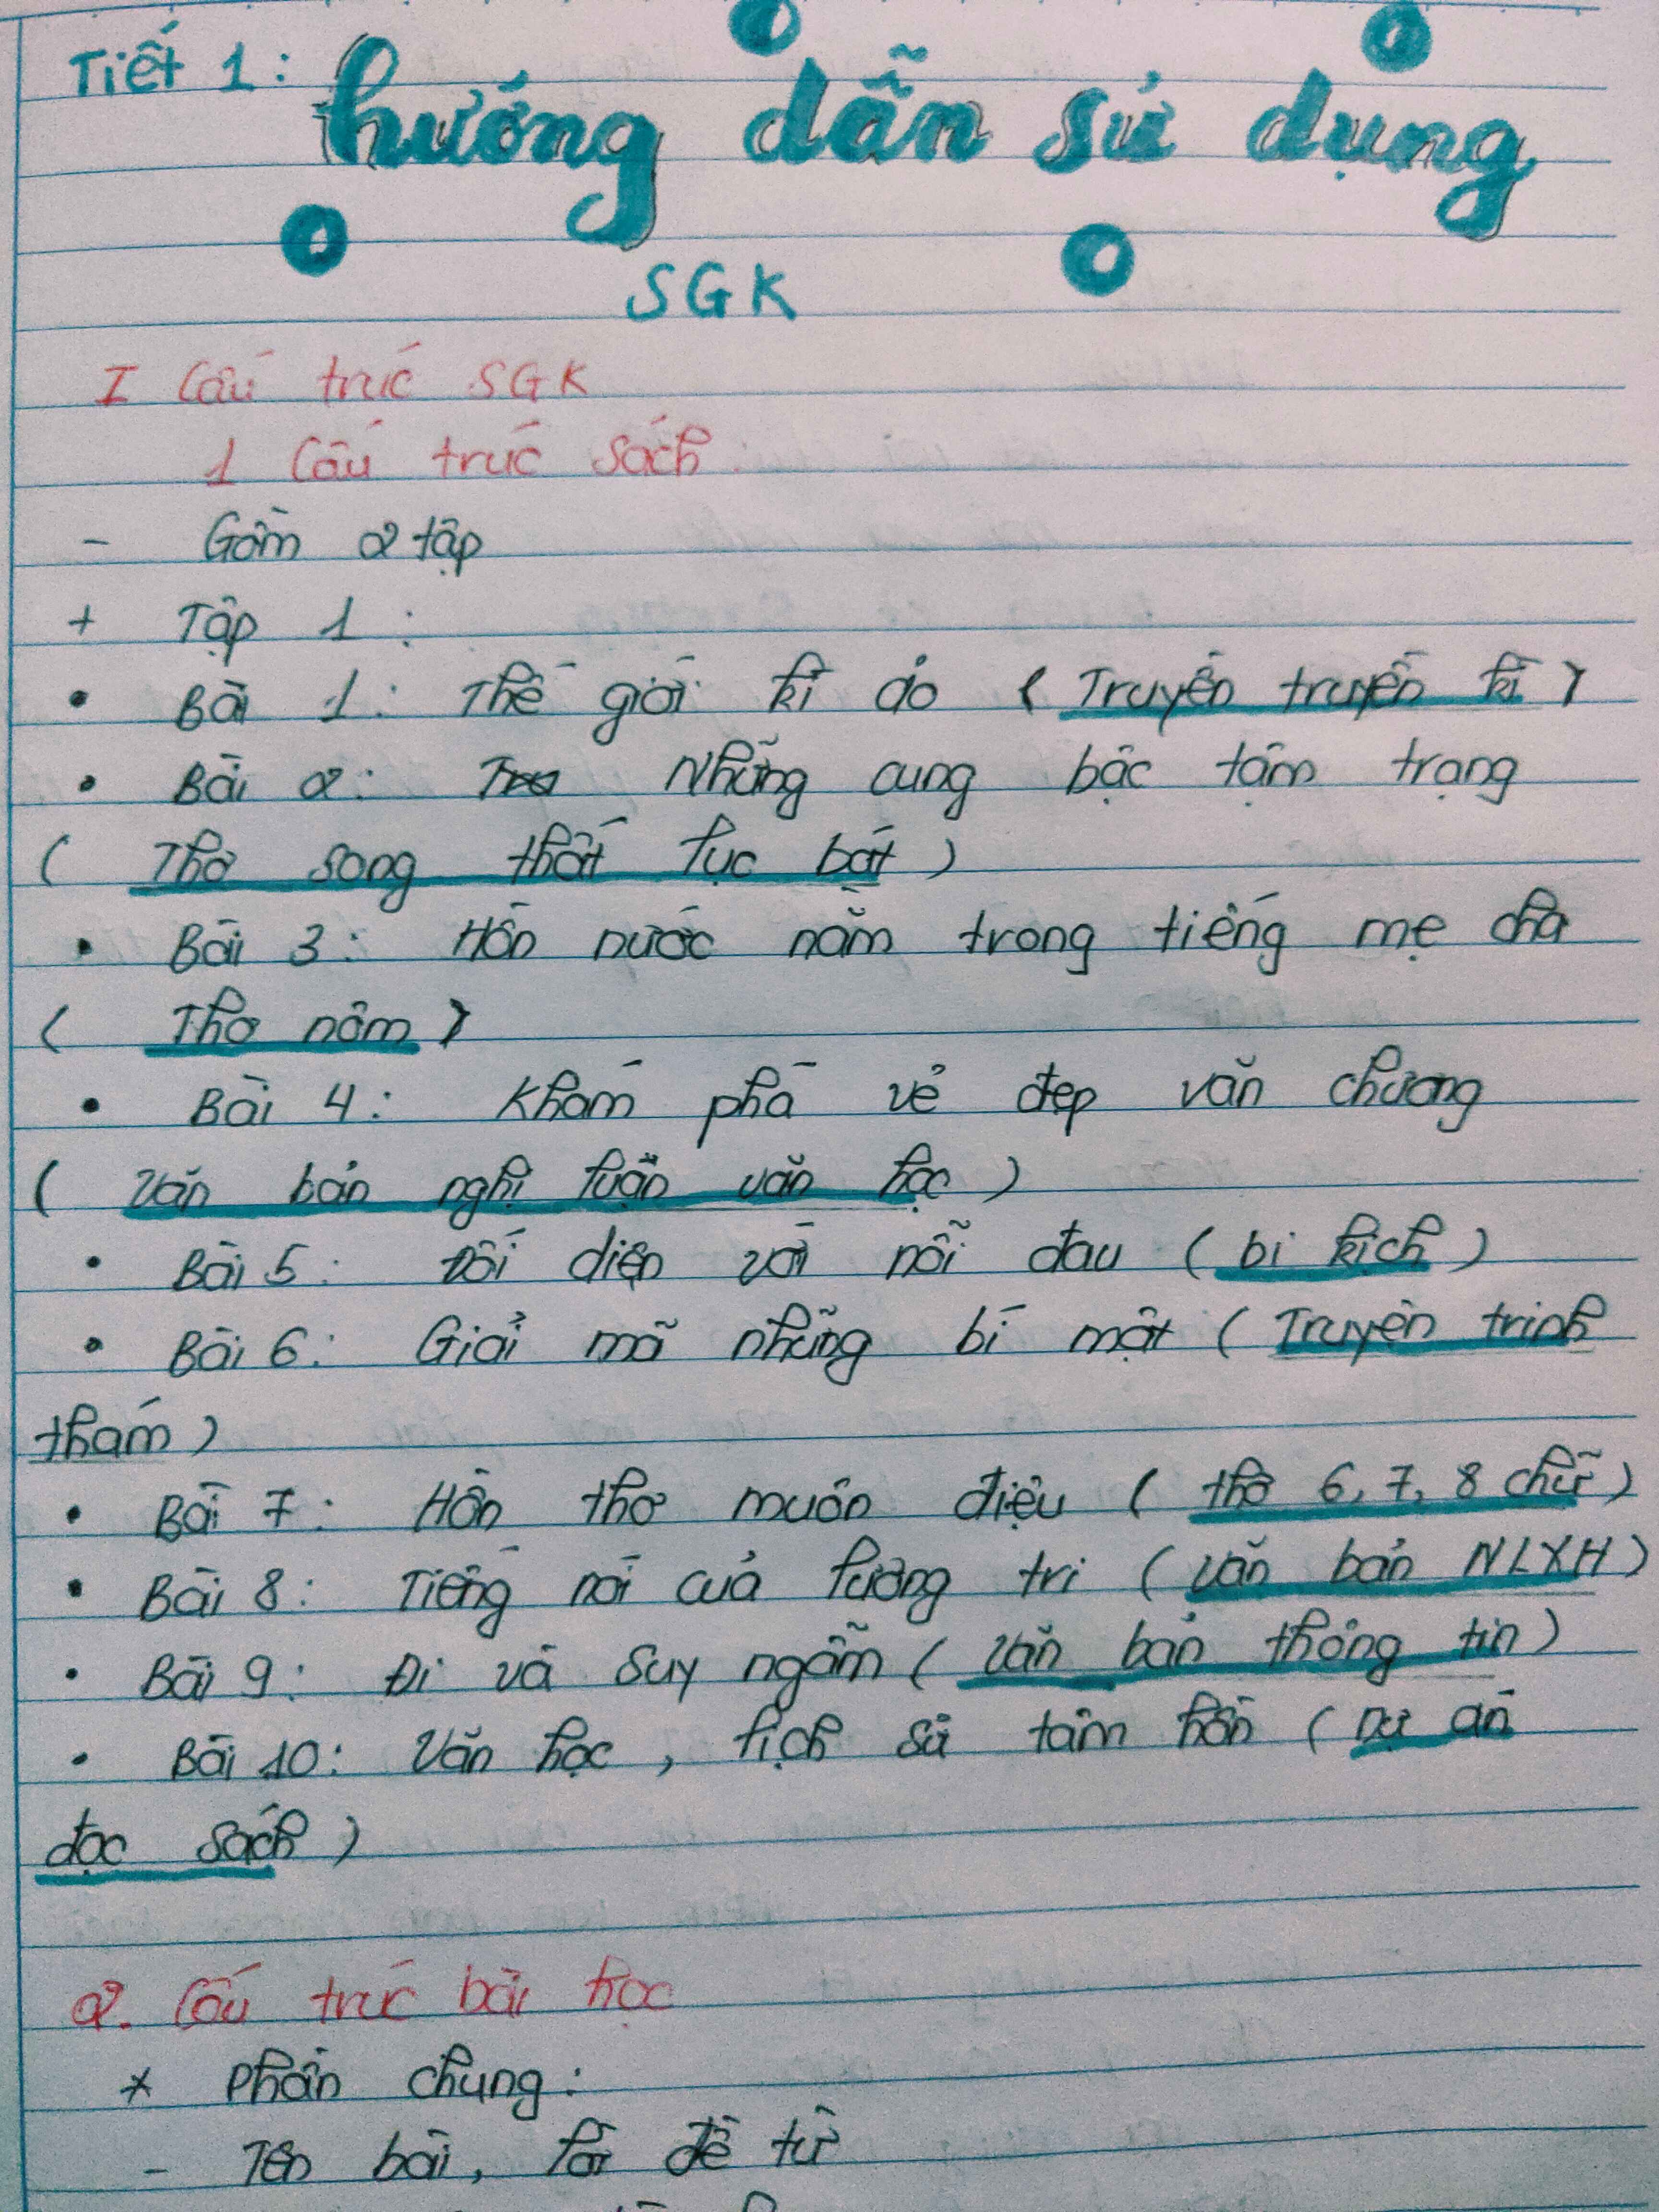 Tiết 1: hướng dẫn sử dụng
SGK
I Cấu trúc SGK
1 Cấu trúc sách:
- Gồm 2 tập
+ Tập 1:
• Bài 1: Thế giới kì ảo (Truyện truyền kì)
• Bài 2: Những cung bậc tâm trạng
(Thơ song thất lục bát)
• Bài 3: Hồn nước nằm trong tiếng mẹ cha
(Thơ nôm)
• Bài 4: Khám phá vẻ đẹp văn chương
(Văn bản nghị luận văn học)
• Bài 5: Đối diện với nỗi đau (bi kịch)
• Bài 6: Giải mã những bí mật (Truyện trinh
thám)
• Bài 7: Hồn thơ muôn điệu (thơ 6, 7, 8 chữ)
• Bài 8: Tiếng nói của lương tri (Văn bản NLXH)
• Bài 9: Đi và suy ngẫm (Văn bản thông tin)
• Bài 10: Văn học, lịch sử tâm hồn (Dự án
đọc sách)
2. Cấu trúc bài học
* Phần chung:
- Tên bài, lời đề từ